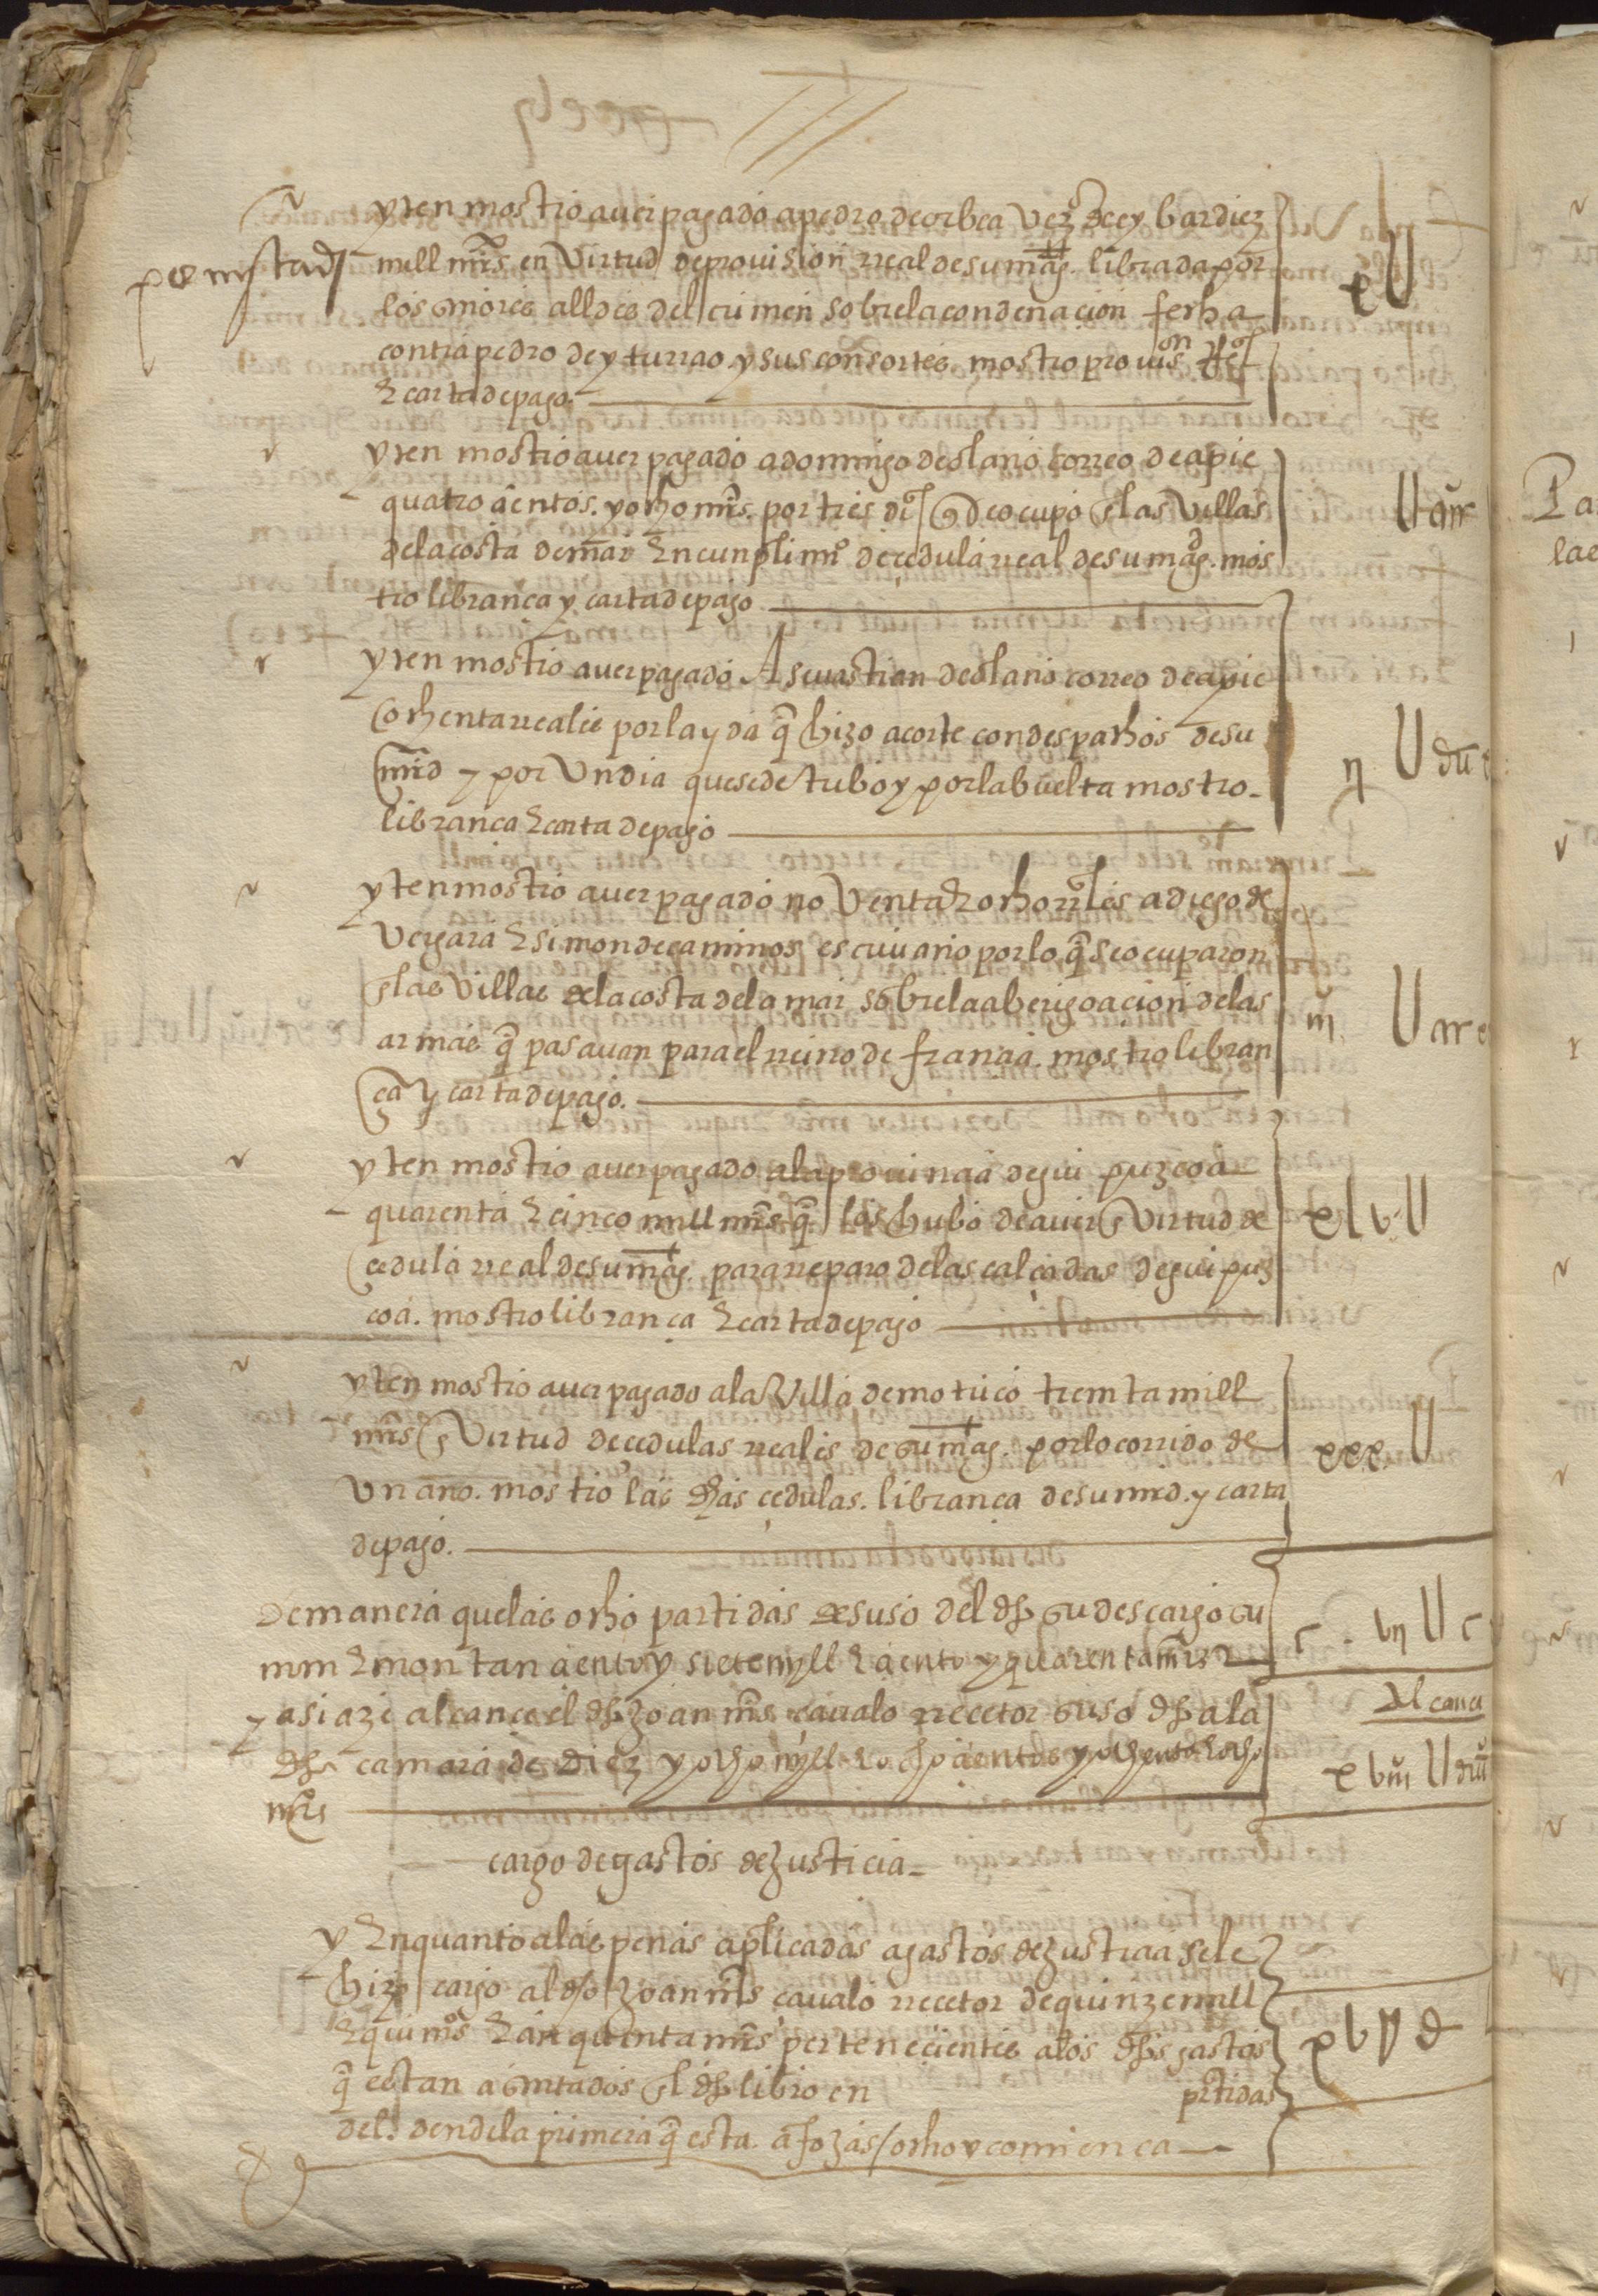 yten mostro aver pagado a pedro de orbea vezº de eybar diez
mill mrs en virtud de provision rreal de su mag. librada por
los señores alldes del crimen sobre la condenacion fecha
contra pedro de yturrao y sus consortes mostro provisºn
E carta de pago.
xU
yten mostro aver pagado a domingo de olano correo de a pie
quatro cientos. y ocho mrs. por tres dis q̃ se ocupo en las villas
de la costa de mar En cunplimiº de cedula rreal de su mag. mos
tro librança y carta de pago
yten mostro aver pagado A sevastian de olano correo de a pie
ochenta rreales por la yda q̃ hizo a corte con despachos de su
mrd y por un dia que se detubo y por la buelta mostro
librança E carta de pago
yten mostro aver pagado noventa E ocho rrles a diego de
vergara E simon de caminos escrivano por lo q̃ se ocuparon
en las villas de la costa de la mar sobre la aberigoacion de las
armas q̃ pasavan para el rreino de francia. mostro libran
ça y carta de pago.
yten mostro aver pagado a la provincia de guipuzcoa
quarenta E cinco mill mrs. q̃ los hubo de aver en virtud de
cedula rreal de su mag. para rreparo de las calçadas de guipuz
coa. mostro librança E carta de pago
xlvU
yten mostro aver pagado a la villa de motrico treinta mill
mrs en virtud de cedulas rreales de su mag. por lo corrido de
un año. mostro las dhas cedulas. librança de su mrd. y carta
de pago.
xxxU
De manera que las ocho partidas de suso del dho su descargo su
man E montan ciento y siete myll E ciento y quarenta mrs
y asi aze alcance el dho Joan mrs çavalo rrecetor suso dho a la
dha camara de diez y ocho myll E ocho cientos y ochenta E ocho
mrs
cargo de gastos de Justicia
y En quanto a las penas aplicadas a gastos de Justicia se le
hizo cargo al dho Joan mrs çavalo rrecetor de quinze mill
E quiniºs E cinquenta mrs pertenecientes a los dhos gastos
q̃ estan asentados en el dho libro en partidas
del. dende la primera q̃ esta. a fojas / ocho y comiença